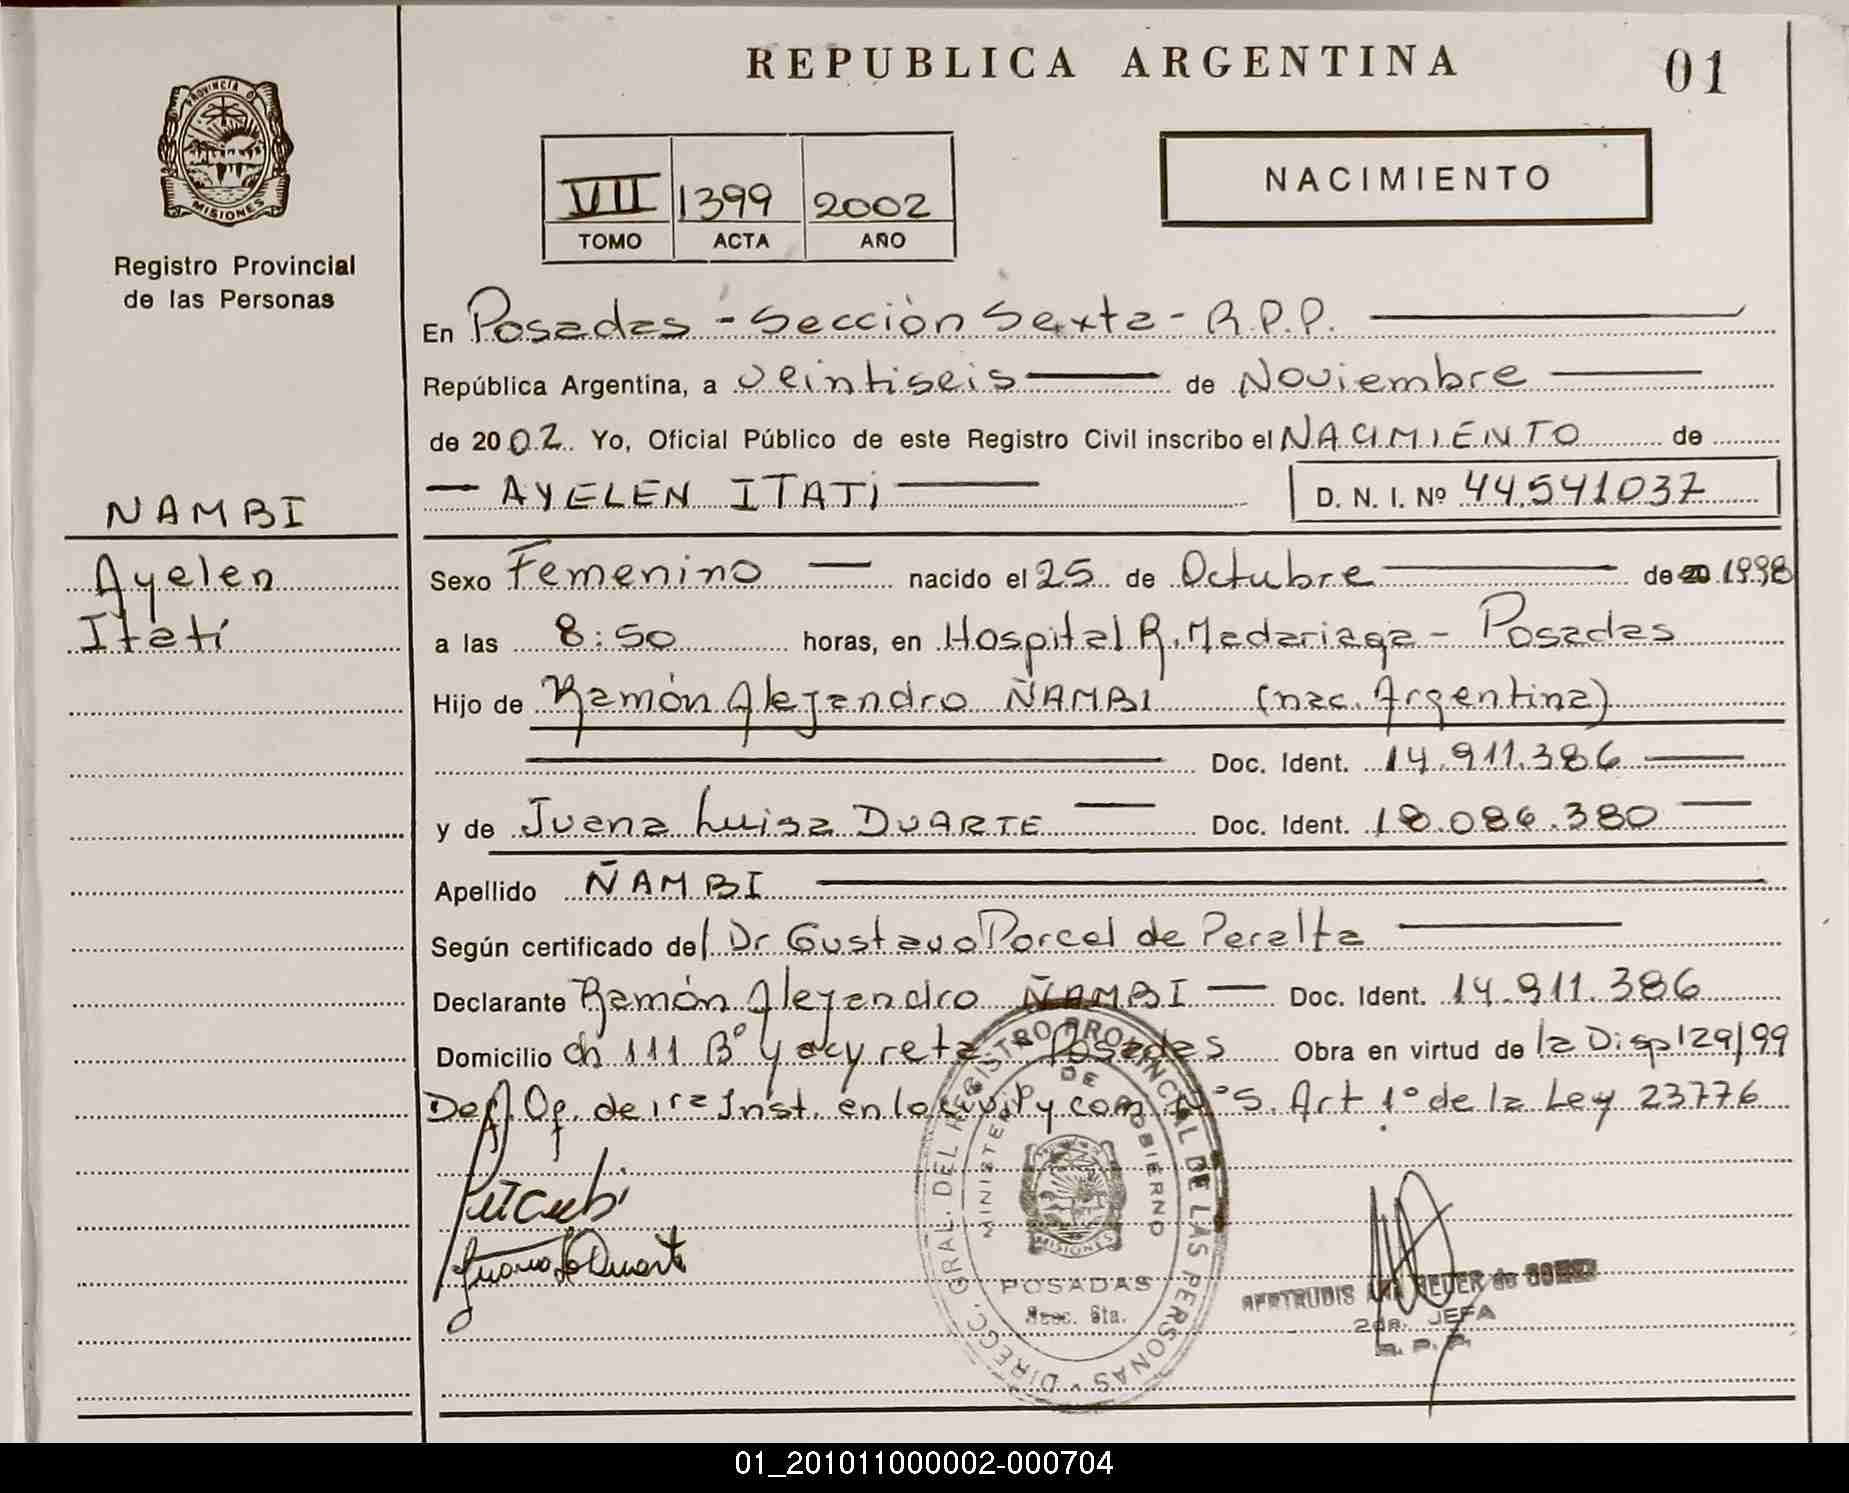 REPUBLICA ARGENTINA
01
PROVINCIA DE
MISIONES
Registro Provincial
de las Personas
VII 1399 2002
TOMO ACTA AÑO
NACIMIENTO
En Posadas - Sección Sexta - R.P.P.
República Argentina, a veintiseis de Noviembre
de 2002. Yo, Oficial Público de este Registro Civil inscribo el NACIMIENTO de
AYELEN ITATI D. N. I. Nº 44.541037
ÑAMBI
Ayelen
Itatí
Sexo Femenino nacido el 25 de Octubre de 20 1998
a las 8:50 horas, en Hospital R. Madariaga - Posadas
Hijo de Ramón Alejandro ÑAMBI (nac. Argentina)
Doc. Ident. 14.911.386
y de Juana Luisa DUARTE Doc. Ident. 18.086.380
Apellido ÑAMBI
Según certificado del Dr Gustavo Porcel de Peralta
Declarante Ramón Alejandro ÑAMBI Doc. Ident. 14.911.386
Domicilio ch 111 Bº Yacyreta - Posadas Obra en virtud de la Disp 129/99
Def. Of. de 1ra Inst. en lo civil y com Nº 5. Art 1º de la Ley 23776
Juana L Duarte
DIRECC. GRAL. DEL REGISTRO PROVINCIAL DE LAS PERSONAS
MINISTERIO DE GOBIERNO
MISIONES
POSADAS
Secc. 6ta.
GERTRUDIS ANA de
2da. JEFA
R. P. P.
01_201011000002-000704